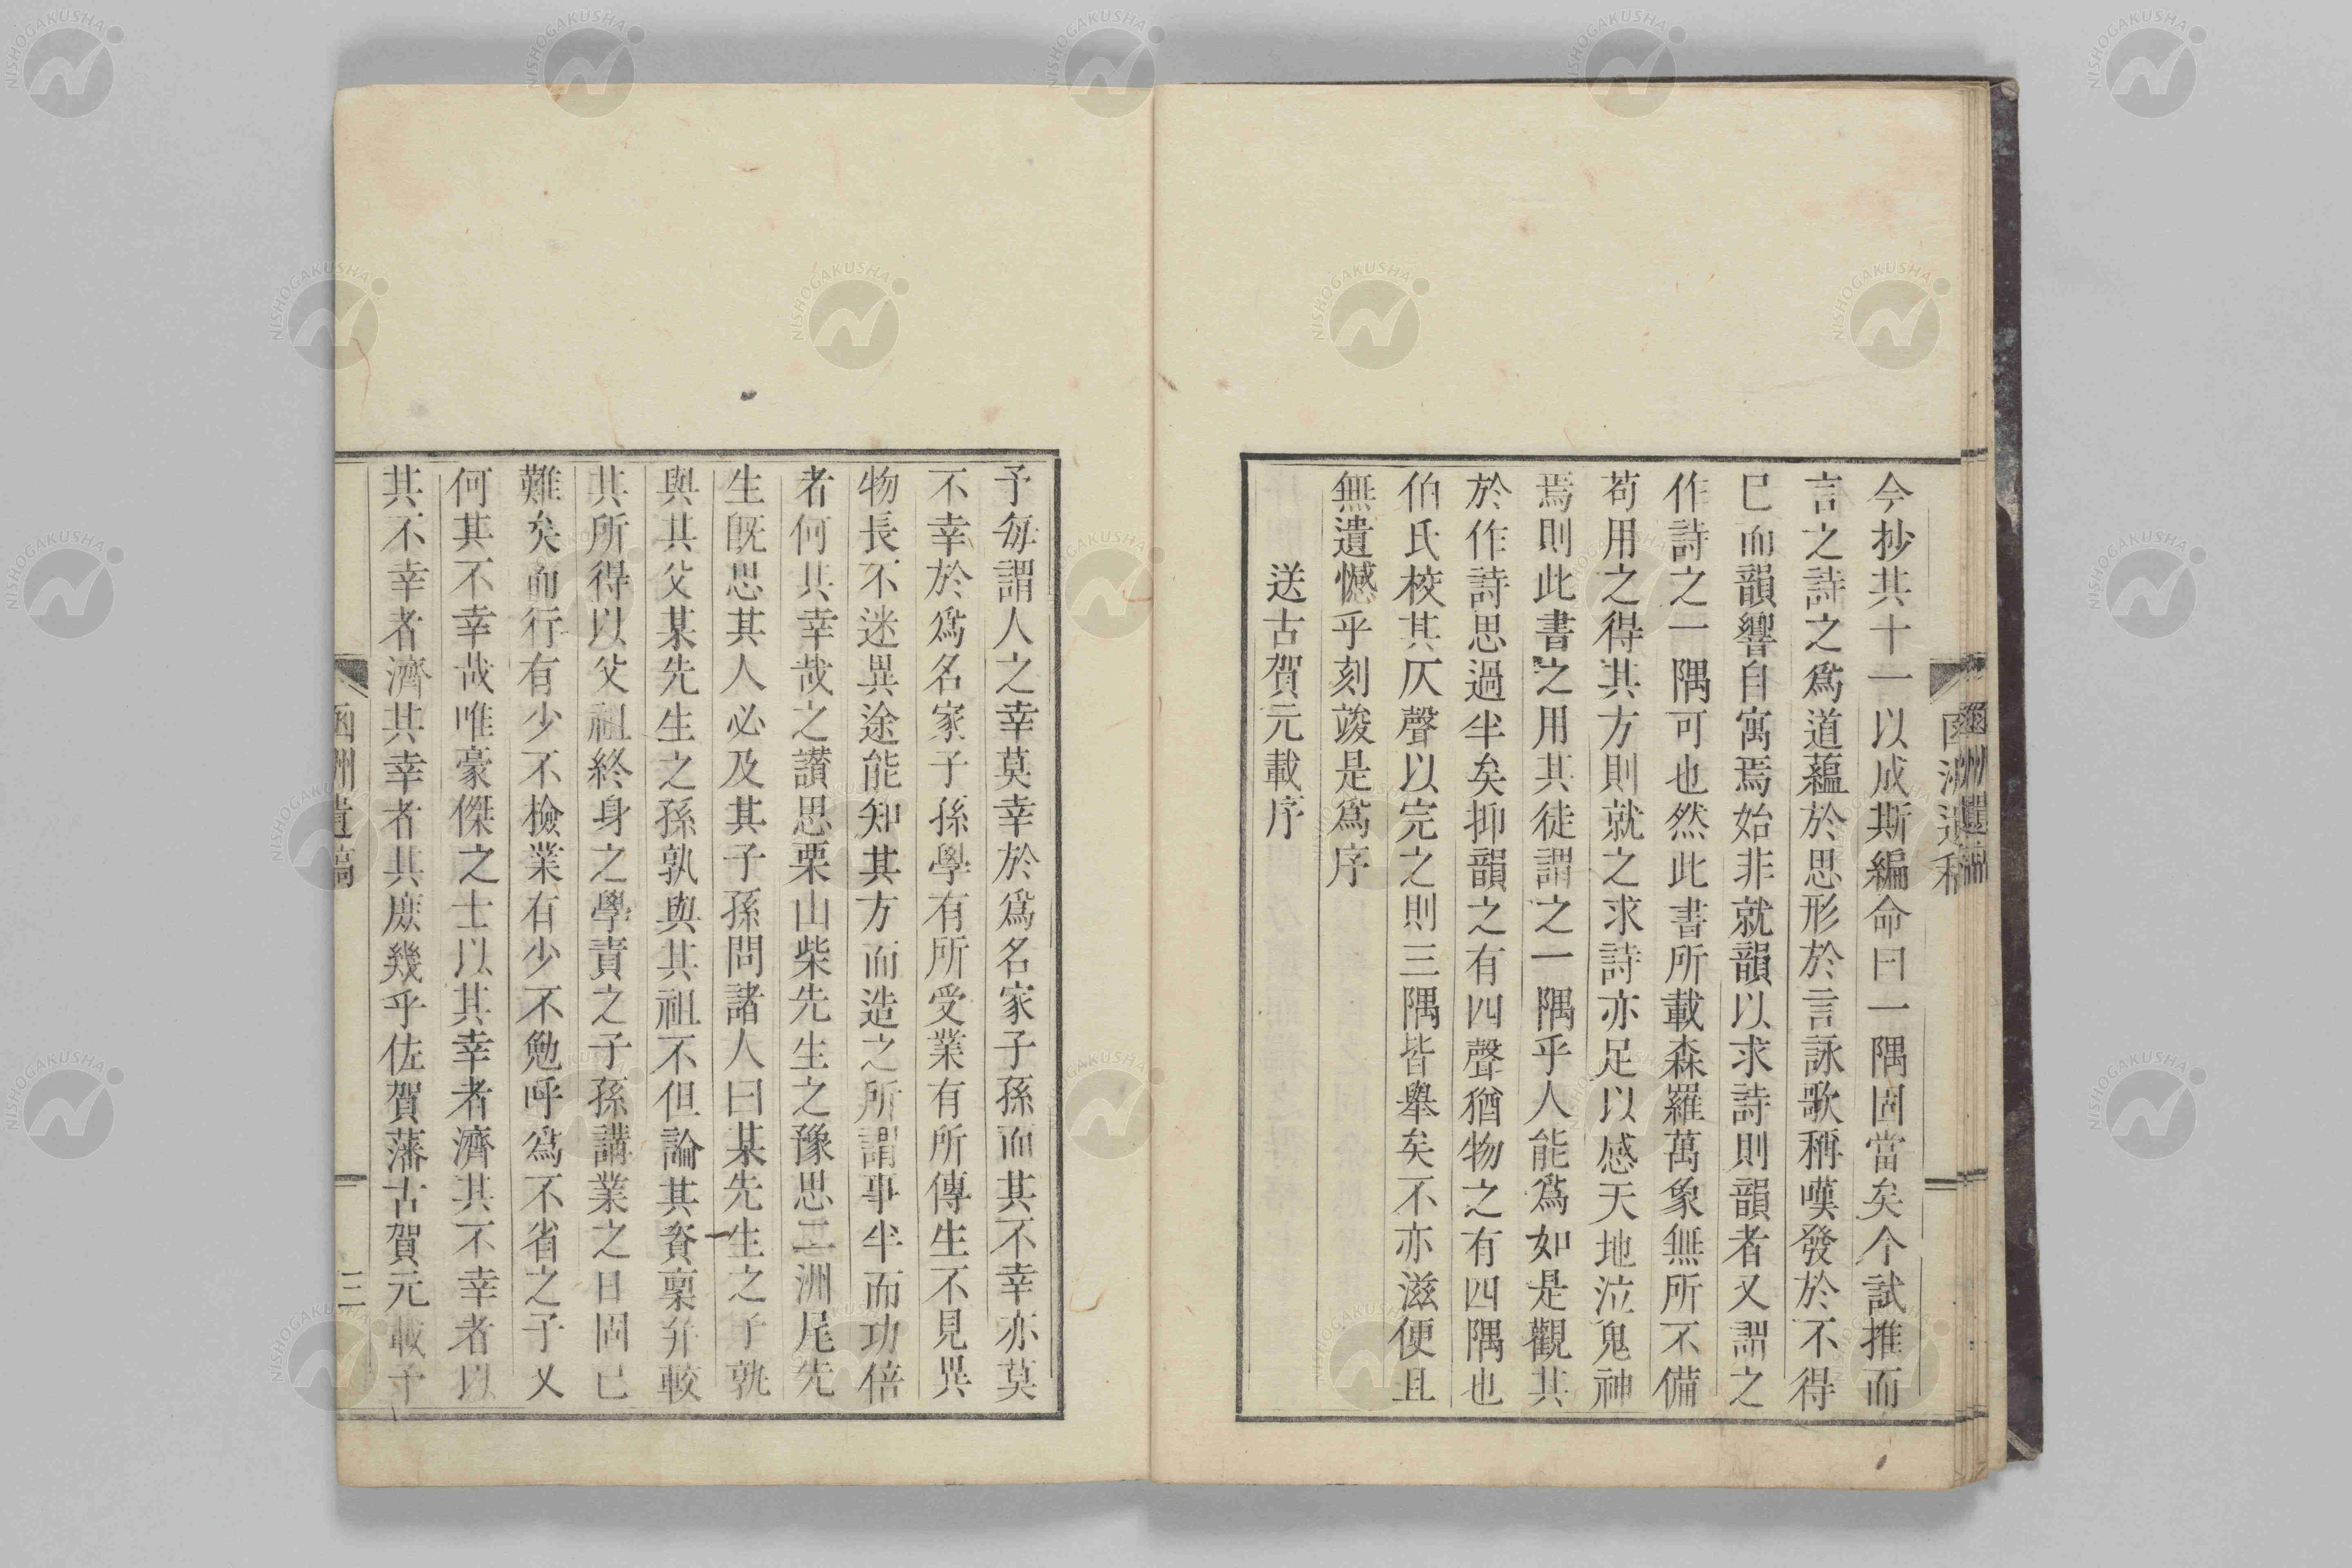 今抄其十一以成斯編命曰一隅固當矣今試推而
言之詩之爲道蘊於思形於言詠歌稱嘆發於不得
已而韻響自寓焉始非就韻以求詩則韻者又謂之
作詩之一隅可也然此書所載森羅萬象無所不備
苟用之得其方則就之求詩亦足以感天地泣鬼神
焉則此書之用其徒謂之一隅乎人能爲如是觀其
於作詩思過半矣抑韻之有四聲猶物之有四隅也
伯氏校其仄聲以完之則三隅皆舉矣不亦滋便且
無遺憾乎刻竣是爲序
送古賀元載序
予每謂人之幸莫幸於爲名家子孫而其不幸亦莫
不幸於爲名家子孫學有所受業有所傳生不見異
物長不迷異途能知其方而造之所謂事半而功倍
者何其幸哉之讃思栗山柴先生之豫思二洲尾先
生既思其人必及其子孫問諸人曰某先生之子孰
與其父某先生之孫孰與其祖不但論其資稟并較
其所得以父祖終身之學責之子孫講業之日固已
難矣而行有少不檢業有少不勉呼爲不省之子又
何其不幸哉唯豪傑之士以其幸者濟其不幸者以
其不幸者濟其幸者其庶幾乎佐賀藩古賀元載予
函洲遺稿
三
NISHOGAKUSHA